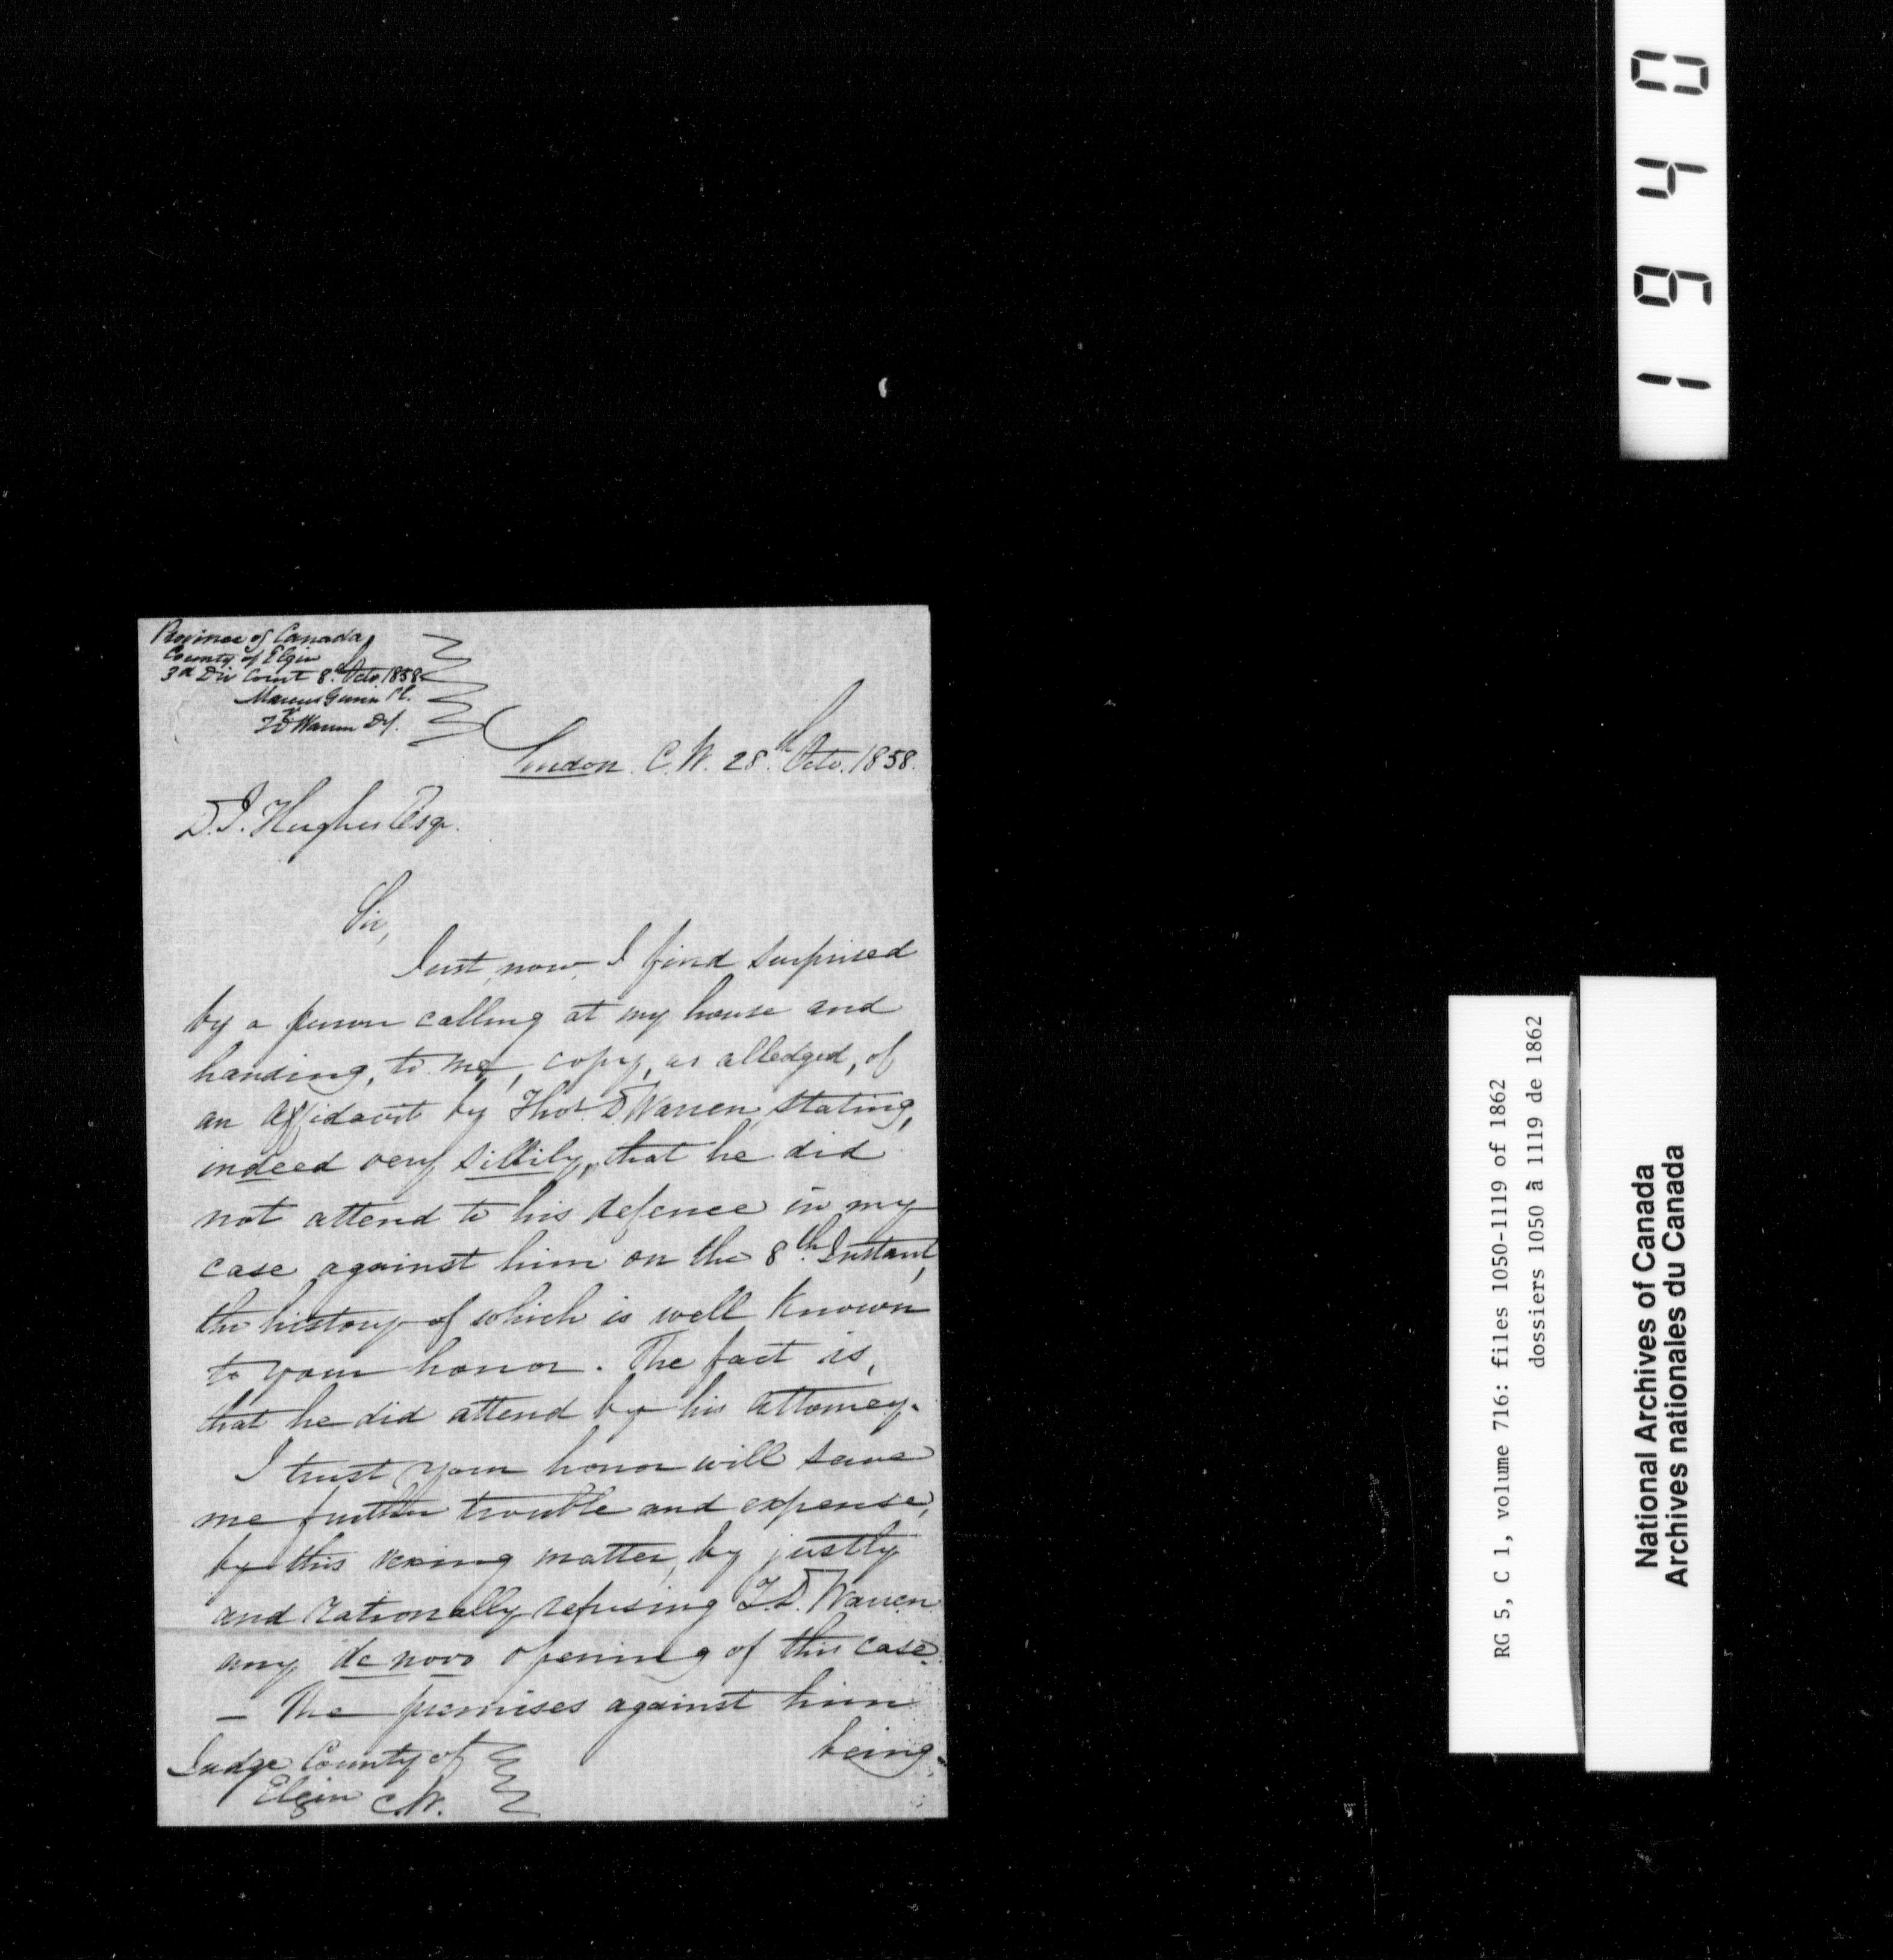 Province of Canada
County of Elgin
3d Div Court 8th Octo 1858
Marcus Gunn Pl.
vs
T D Warren Df.
London. C. W. 28th Octo. 1858.
D. J. Hughes Esqr.
Sir,
Just now, I find surprised
by a person calling at my house and
handing, to me, copy, as alledged, of
an affidavit by Thos. D. Warren, stating,
indeed very sillily, that he did
not attend to his defence in my
case against him on the 8th. Instant,
the history of which is well known
to your honor. The fact is,
that he did attend by his Attorney.
I trust your honor will save
me further trouble and expense,
by this vexing matter, by justly
and rationally refusing T. D. Warren
any de novo opening of this case.
— The premises against him
being
Judge County of
Elgin C.W.
1940
RG 5, C 1, volume 716: files 1050-1119 of 1862
dossiers 1050 à 1119 de 1862
National Archives of Canada
Archives nationales du Canada